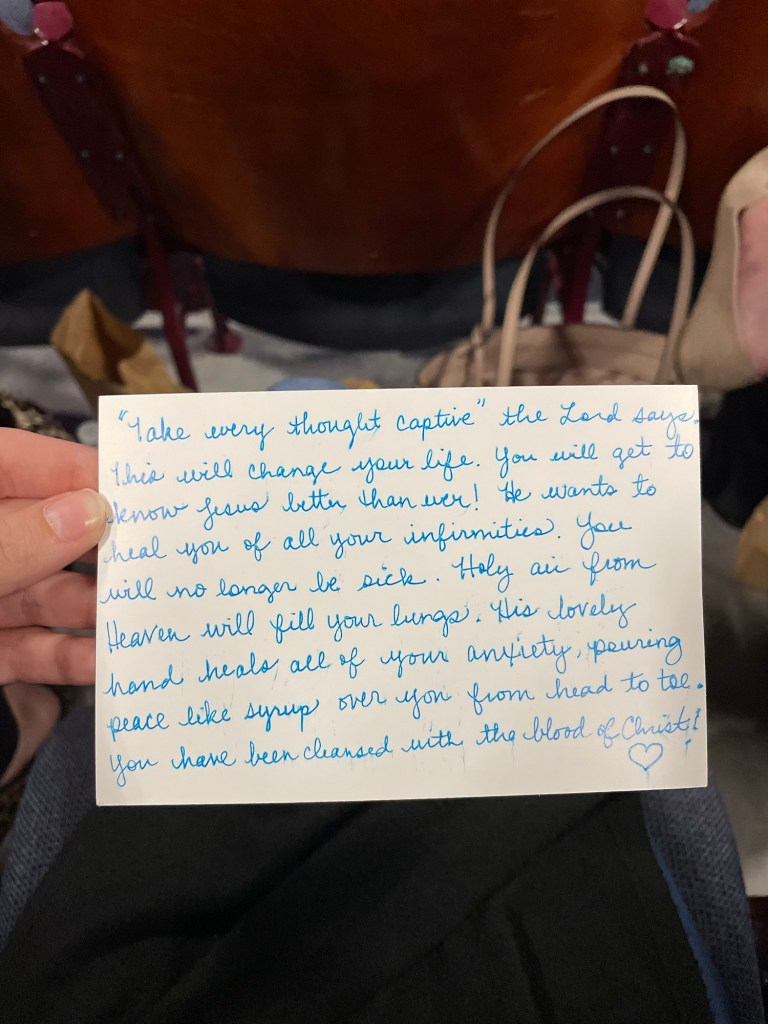 "Take every thought captive" the Lord says.
This will change your life. You will get to
know Jesus better than ever! He wants to
heal you of all your infirmities. You
will no longer be sick. Holy air from
Heaven will fill your lungs. His lovely
hand heals all of your anxiety, pouring
peace like syrup over you from head to toe.
You have been cleansed with the blood of Christ!